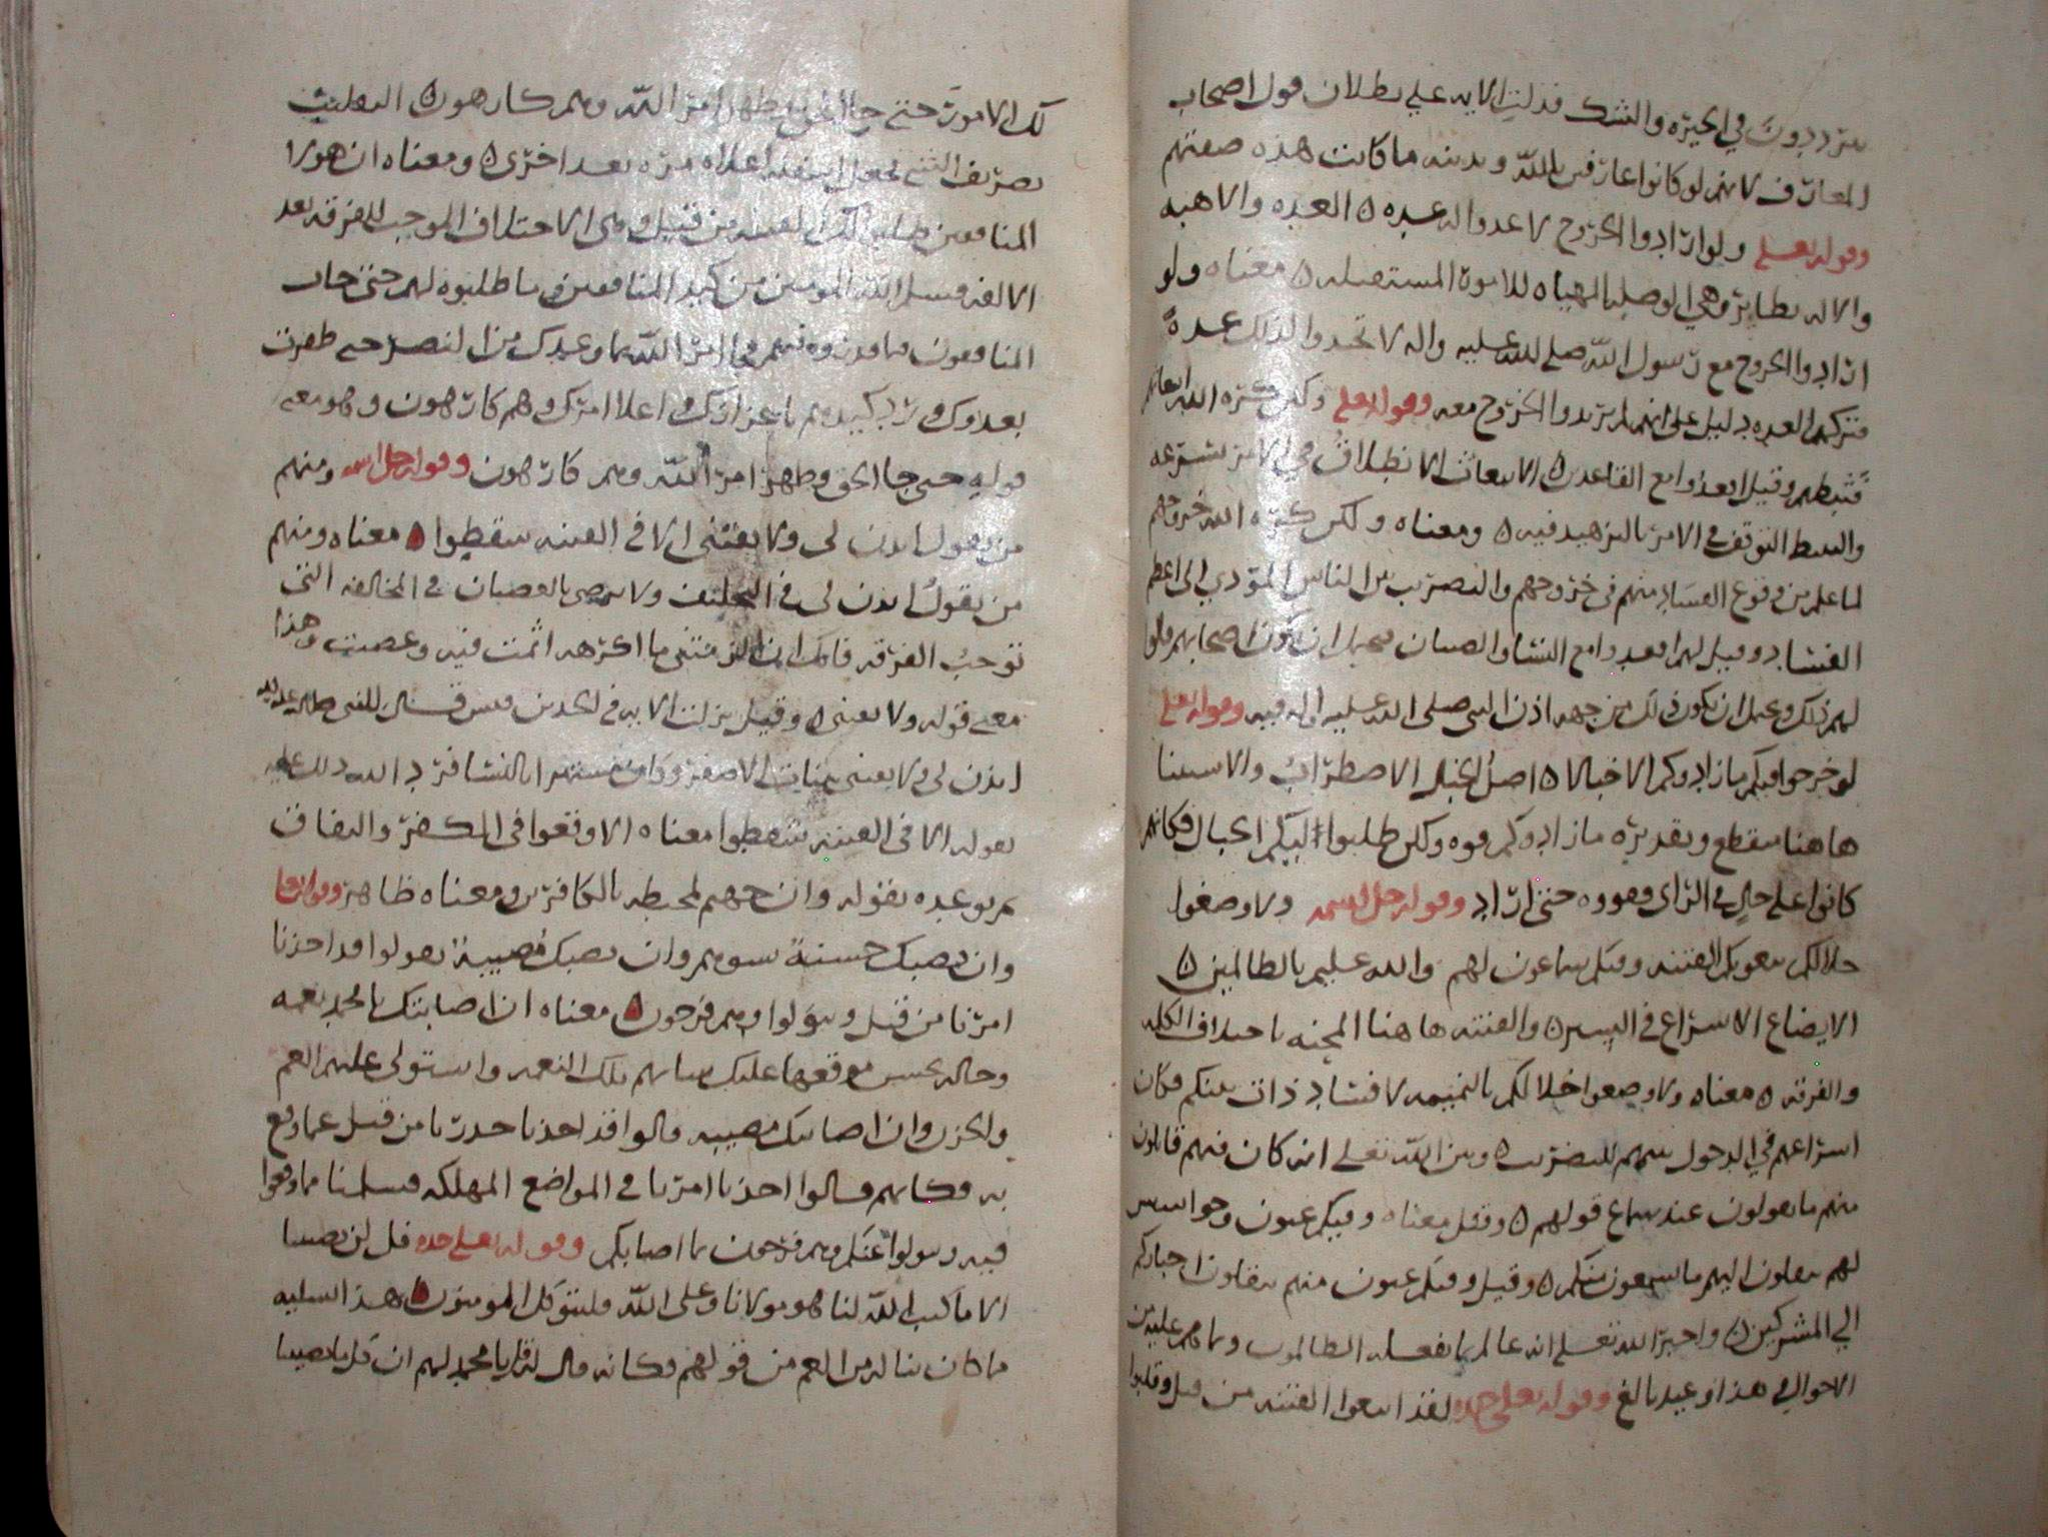 يترددون في الحيرة والشك فدلت الآيه على بطلان قول اصحاب
المعارف لانهم لو كانوا عارفين بالله وبدينه ما كانت هذه صفتهم
وقوله تعلى ولو ارادوا الخروج لاعدوا له عده العده والاهبه
والاله نظاير وهي الوصله المهياه للامور المستقبله معناه ولو
ارادوا الخروج مع رسول الله صلى الله عليه واله لاتخذوا لذلك عدة
فتركهم العده دليل على انهم لم يريدوا الخروج معه وقوله تعلى ولكن كره الله انبعاثهم
فثبطهم وقيل اقعدوا مع القاعدين الانبعاث الانطلاق في الامر بسرعه
والتثبط التوقف في الامر بالتزهيد فيه ومعناه ولكن كره الله خروجهم
لما علم من وقوع الفساد منهم في خروجهم والتضريب بين الناس المؤدي الى اعظم
الفساد وقيل لهم اقعدوا مع النسا والصبيان يحتمل ان يكون اصحابهم قالوا
لهم ذلك ويحتمل ان يكون ذلك من جهه اذن النبي صلى الله عليه واله فيه وقوله تعلى
لو خرجوا فيكم ما زادوكم الا خبالا اصل الخبل الاضطراب والاستثنا
هاهنا منقطع وتقديره ما زادوكم قوه ولكن طلبوا لكم الخبال فكانهم
كانوا على حال في الراي وقووه حتى اراد وقوله جل اسمه ولاوضعوا
خلالكم يبغونكم الفتنه وفيكم سماعون لهم والله عليم بالظالمين
الايضاع الاسراع في السير والفتنه هاهنا المحنه باختلاف الكلمه
والفرقه معناه ولاوضعوا خلالكم بالنميمه لافساد ذات بينكم فكان
اسراعهم في الدخول بينهم للتضريب وبين الله تعلى انه كان فيهم قابلون
منهم ما يقولون عند سماع قولهم وقيل معناه وفيكم عيون وجواسيس
لهم ينقلون اليهم ما يسمعون منكم وقيل وفيكم عيون منهم ينقلون اخباركم
الي المشركين واخبر الله تعلى انه عالم بما يفعله الظالمون وما هم عليه من
الاحوال وفي هذا وعيد بالغ وقوله تعلى جده لقد ابتغوا الفتنه من قبل وقلبوا
لك الامور حتى جا الحق وظهر امر الله وهم كارهون التقليب
تصريف الشي بجعل اسفله اعلاه مره بعد اخرى ومعناه ان هولا
المنافقين طلبوا لك الفتنه من قبل وهى الاختلاف الموجب للفرقه بعد
الالفه فسلم الله المومنين من كيد المنافقين وما طلبوه لهم حتى خاب
المنافقون فما قدروه فيهم في امر الله بما وعدك من النصر حتى ظفرت
بعدوك ورد كيدهم باعزازك واعلا امرك وهم كارهون وهو معنى
قوله حتى جا الحق وظهر امر الله وهم كارهون وقوله جل اسمه ومنهم
من يقول ايذن لي ولا تفتني الا في الفتنه سقطوا معناه ومنهم
من يقول ايذن لي في التخلف ولا ترضى بالعصيان في المخالفه التي
توجب الفرقه فانك ان لم تفتنى ما اكره اثمت فيه وعصيت وهذا
معنى قوله ولا تفتني وقيل نزلت الايه في الجد بن قيس قال للنبي صلى الله عليه
ايذن لى ولا تفتنى ببنات الاصفر وكان مستهترا بالنسا فرد الله ذلك عليه
بقوله الا في الفتنه سقطوا معناه الا وقعوا في الكفر والنفاق
ثم توعده بقوله وان جهنم لمحيطه بالكافرين ومعناه ظاهر وقوله تعلى
وان تصبك حسنة تسوهم وان تصبك مصيبة يقولوا قد اخذنا
امرنا من قبل ويتولوا وهم فرحون معناه ان اصابتك يا محمد نعمه
وحاله يحسن موقعها عليك ساهم تلك النعمه واستولى عليهم الغم
والحزن وان اصابتك مصيبه قالوا قد اخذنا حذرنا من قبل عما وقع
به فكانهم قالوا اخذنا امرنا في المواضع المهلكه فسلمنا مما وقعوا
فيه ويتولوا عنكم وهم فرحون بما اصابكم وقوله تعلى جده قل لن يصيبنا
الا ما كتب الله لنا هو مولانا وعلى الله فليتوكل المومنون هذا تسليه
ما كان يناله من الغم من قولهم فكانه قال له قل يا محمد لهم ان كل ما يصيبنا